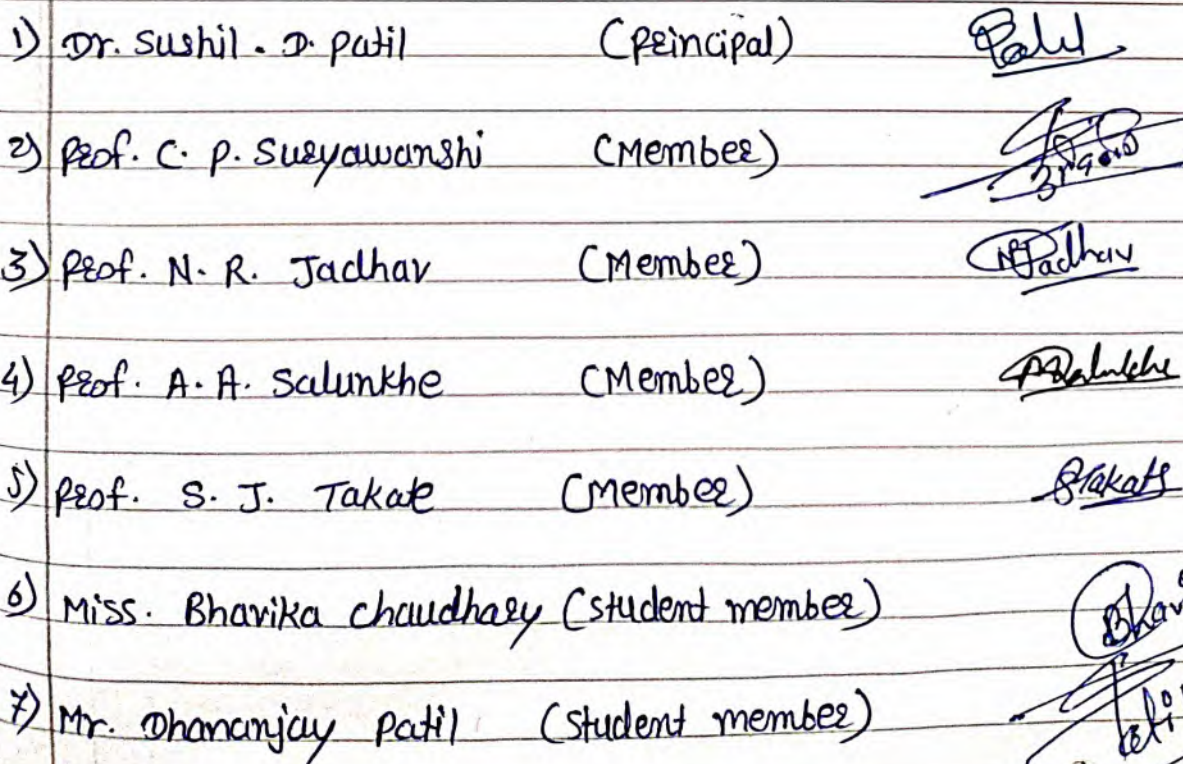 1) Dr. Sushil. D. Patil (Principal) Patil
2) Prof. C. P. Suryawanshi (Member)
3) Prof. N. R. Jadhav (Member) NRJadhav
4) Prof. A. A. Salunkhe (Member) AASalunkhe
5) Prof. S. J. Takate (Member) STakate
6) Miss. Bhavika Chaudhary (Student member) Bhav
7) Mr. Dhananjay Patil (Student member)